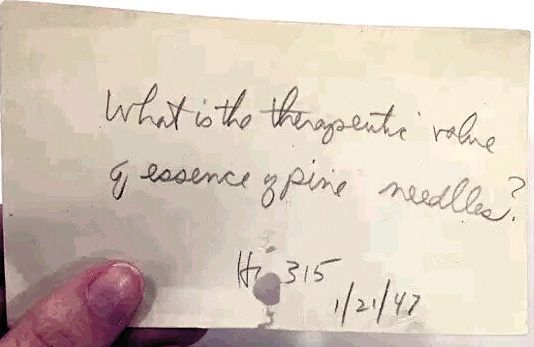 What is the therapeutic value
of essence of pine needles?
315
1/21/47